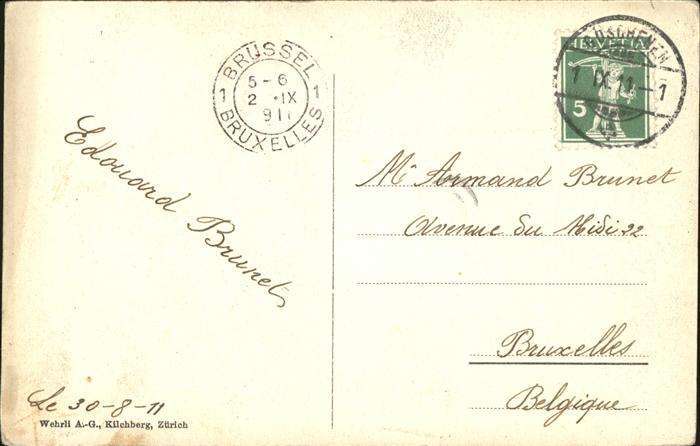 BRÜSSEL
5-6
1 2 .IX 1
911
BRUXELLES
GÖSCHENEN
HELVETIA
1 IX 11.-1
5
Edouard Brunet
Mr Armand Brunet
Avenue du Midi 22
Bruxelles
Belgique
Le 30-8-11
Wehrli A.-G., Kilchberg, Zürich